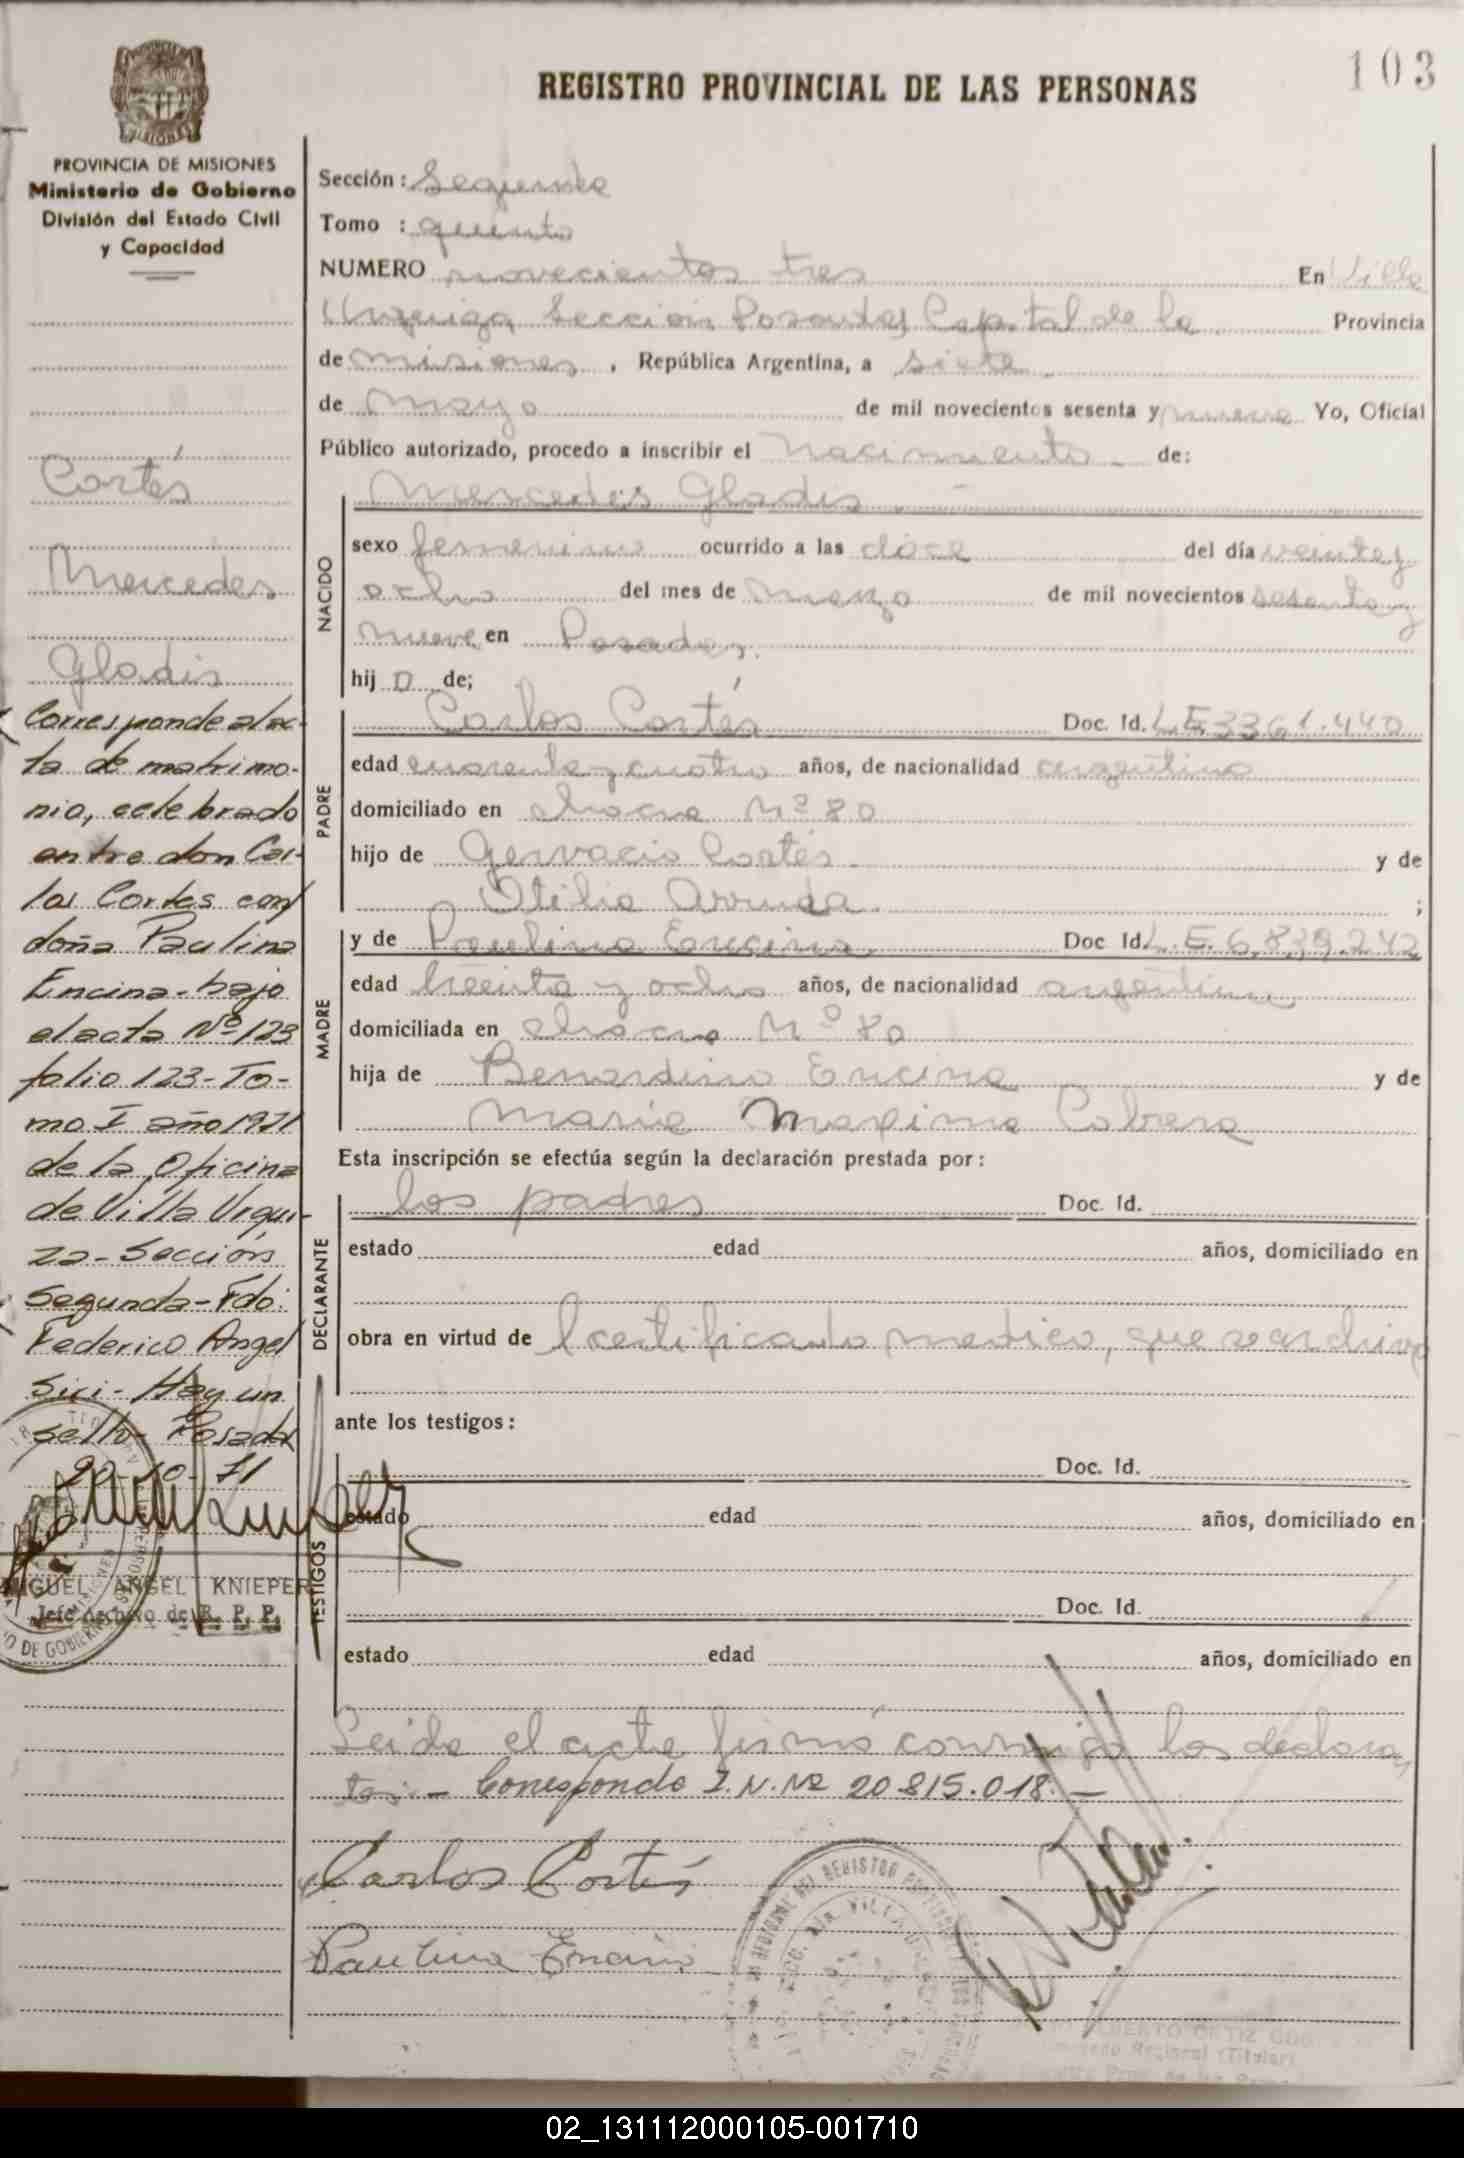 103
REGISTRO PROVINCIAL DE LAS PERSONAS
PROVINCIA DE MISIONES
Ministerio de Gobierno
División del Estado Civil
y Capacidad
Cortés
Mercedes
Gladis
Corresponde al ac-
ta de matrimo-
nio, celebrado
entre don Car-
los Cortes con
doña Paulina
Encina - bajo
el acta Nº 123
folio 123 - To-
mo I año 1971
de la Oficina
de Villa Urqui-
za - Sección
Segunda - Fdo:
Federico Angel
Sixi - Hay un
sello - Posadas
20-10-71
MIGUEL ANGEL KNIEPER
Jefe Archivo de R. P. P.
Sección: Segunda
Tomo : quinto
NUMERO novecientos tres En Villa
Urquiza, Sección Posadas, Capital de la Provincia
de misiones , República Argentina, a siete
de Mayo de mil novecientos sesenta y nueve Yo, Oficial
Público autorizado, procedo a inscribir el Nacimiento de:
NACIDO
Mercedes Gladis
sexo femenino ocurrido a las doce del día veinte y
ocho del mes de marzo de mil novecientos sesenta y
nueve en Posadas.
hij a de;
PADRE
Carlos Cortés Doc. Id. L.E. 3361.440
edad cuarenta y cuatro años, de nacionalidad argentino
domiciliado en chacra Nº 80
hijo de Gervacio Cortés y de
Otilia Arruda ;
MADRE
y de Paulina Encina Doc Id. L.E. 6.839.242
edad treinta y ocho años, de nacionalidad argentina
domiciliada en chacra Nº 80
hija de Bernardino Encina y de
María Maxima Cabrera
Esta inscripción se efectúa según la declaración prestada por:
DECLARANTE
los padres Doc. Id.
estado edad años, domiciliado en
obra en virtud de certificado medico, que se archiva
ante los testigos:
TESTIGOS
Doc. Id.
estado edad años, domiciliado en
Doc. Id.
estado edad años, domiciliado en
Leida el acta firmó conmigo los declaran
tes: - Corresponde I.N. Nº 20.815.018. -
Carlos Cortés
Paulina Encina
02_131112000105-001710